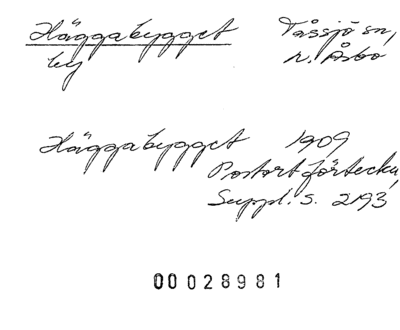 Häggabygget Tåssjö sn,
by n. Åsbo
Häggabygget 1909
Postortförteckn,
Suppl. s. 293
00028981